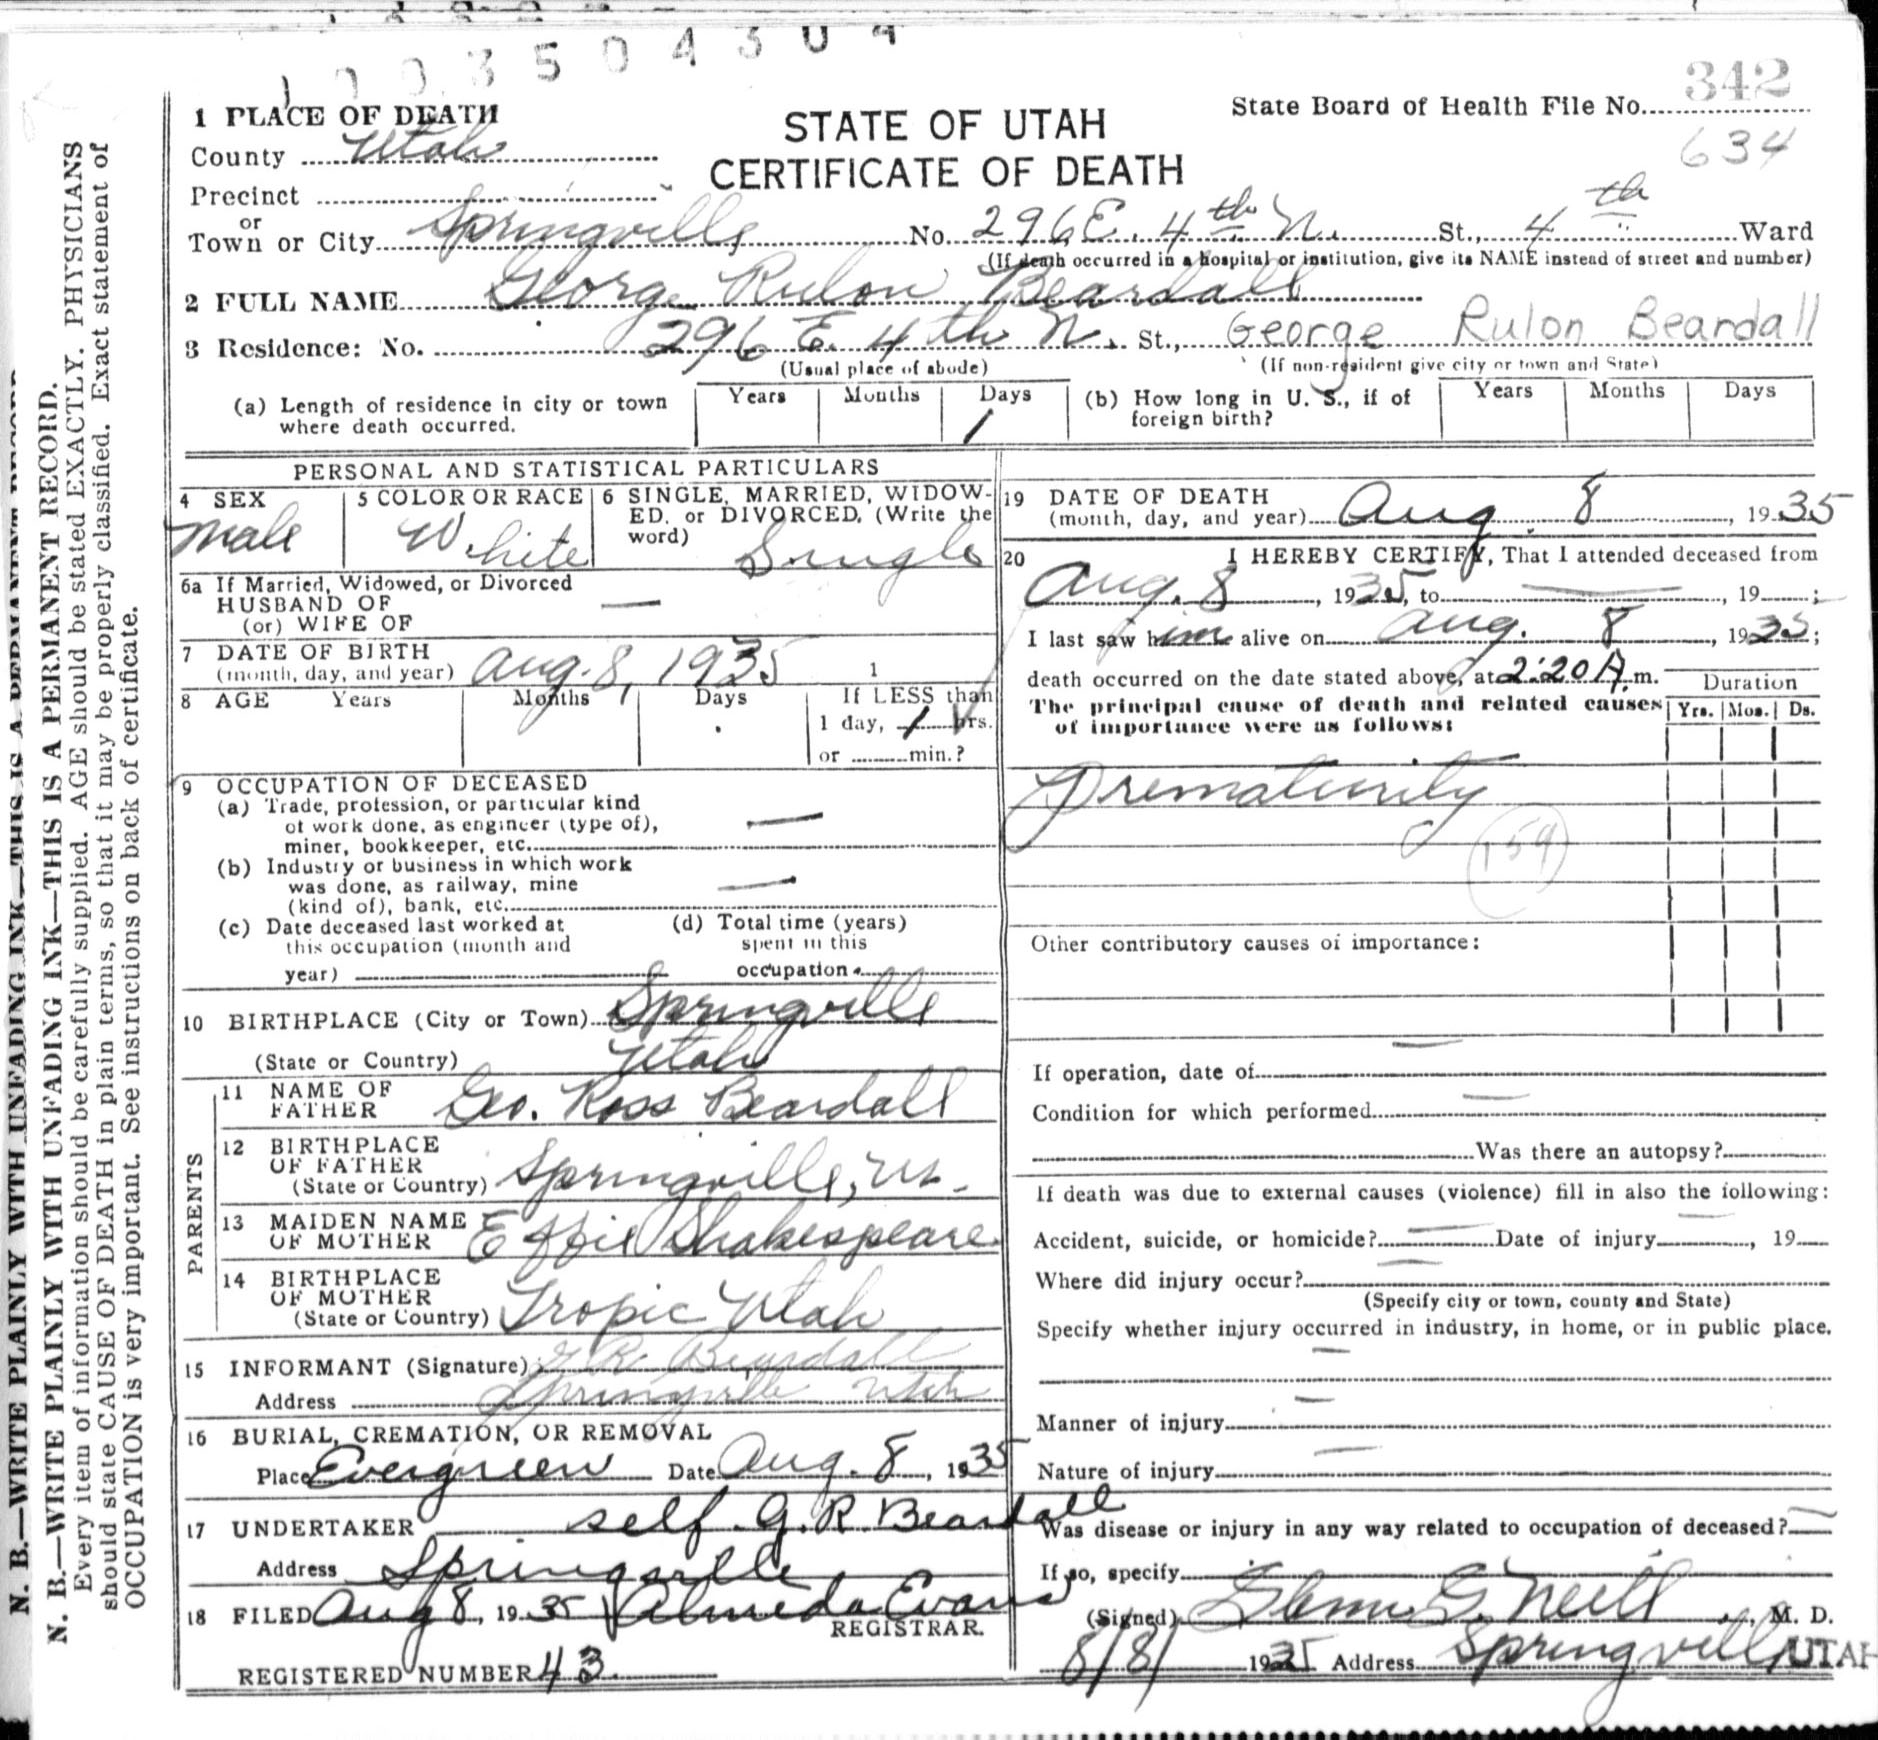 1003504304
342
State Board of Health File No.
634
STATE OF UTAH
CERTIFICATE OF DEATH
1 PLACE OF DEATH
County Utah
Precinct
or
Town or City Springville No. 296 E. 4th N. St., 4th Ward
(If death occurred in a hospital or institution, give its NAME instead of street and number)
2 FULL NAME George Rulon Beardall
3 Residence: No. 296 E. 4th N. St., George Rulon Beardall
(Usual place of abode) (If non-resident give city or town and State)
(a) Length of residence in city or town where death occurred. Years Months Days 1
(b) How long in U. S., if of foreign birth? Years Months Days
PERSONAL AND STATISTICAL PARTICULARS
4 SEX Male
5 COLOR OR RACE White
6 SINGLE, MARRIED, WIDOW-
ED, or DIVORCED, (Write the
word) Single
6a If Married, Widowed, or Divorced
HUSBAND OF —
(or) WIFE OF
7 DATE OF BIRTH
(month, day, and year) Aug. 8, 1935 1
8 AGE Years Months Days If LESS than
1 day, 1 hrs.
or min.?
9 OCCUPATION OF DECEASED
(a) Trade, profession, or particular kind
of work done, as engineer (type of), —
miner, bookkeeper, etc.
(b) Industry or business in which work
was done, as railway, mine —
(kind of), bank, etc.
(c) Date deceased last worked at
this occupation (month and
year)
(d) Total time (years)
spent in this
occupation
10 BIRTHPLACE (City or Town) Springville
(State or Country) Utah
PARENTS
11 NAME OF
FATHER Geo. Ross Beardall
12 BIRTHPLACE
OF FATHER
(State or Country) Springville, Ut.
13 MAIDEN NAME
OF MOTHER Effie Shakespeare
14 BIRTHPLACE
OF MOTHER
(State or Country) Tropic Utah
15 INFORMANT (Signature) G R Beardall
Address Springville Utah
16 BURIAL, CREMATION, OR REMOVAL
Place Evergreen Date Aug. 8, 1935
17 UNDERTAKER self G. R Beardall
Address Springville
18 FILED Aug 8, 1935 Almeda Evans
REGISTRAR.
REGISTERED NUMBER 43
19 DATE OF DEATH
(month, day, and year) Aug. 8, 1935
20 I HEREBY CERTIFY, That I attended deceased from
Aug. 8, 1935, to —, 19—;
I last saw him alive on Aug. 8, 1935;
death occurred on the date stated above, at 2:20 A. m.
Duration
The principal cause of death and related causes
of importance were as follows:
Yrs. Mos. Ds.
Prematurity
159
Other contributory causes of importance:
If operation, date of —
Condition for which performed —
Was there an autopsy?
If death was due to external causes (violence) fill in also the following:
Accident, suicide, or homicide? — Date of injury —, 19
Where did injury occur? —
(Specify city or town, county and State)
Specify whether injury occurred in industry, in home, or in public place.
—
Manner of injury —
Nature of injury —
Was disease or injury in any way related to occupation of deceased? —
If so, specify
(Signed) Glenn G. Neill, M. D.
8/8/ 1935 Address Springville, UTAH
N. B.—WRITE PLAINLY WITH UNFADING INK—THIS IS A PERMANENT RECORD
N. B.—WRITE PLAINLY WITH UNFADING INK—THIS IS A PERMANENT RECORD.
Every item of information should be carefully supplied. AGE should be stated EXACTLY. PHYSICIANS
should state CAUSE OF DEATH in plain terms, so that it may be properly classified. Exact statement of
OCCUPATION is very important. See instructions on back of certificate.